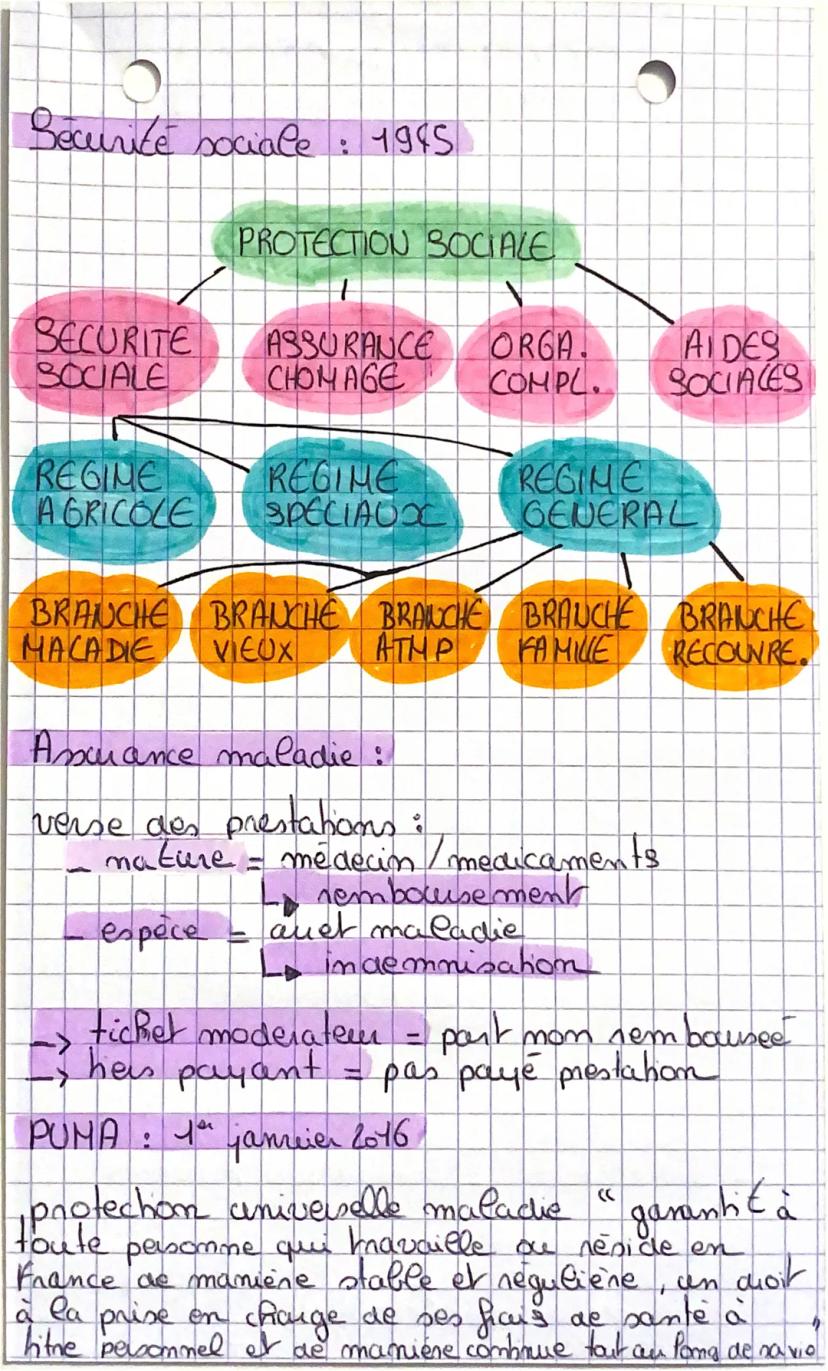 Sécurité sociale : 1945
PROTECTION SOCIALE
SECURITE SOCIALE
ASSURANCE CHOMAGE
ORGA. COMPL.
AIDES SOCIALES
REGIME AGRICOLE
REGIME SPECIAUX
REGIME GENERAL
BRANCHE MALADIE
BRANCHE VIEUX
BRANCHE ATMP
BRANCHE FAMILLE
BRANCHE RECOUVRE.
Assurance maladie :
verse des prestations :
- nature = médecin / medicaments
↳ remboursement
- espèce = arret maladie
↳ indemnisation
-> ticket moderateur = part non rembourseé
-> tiers payant = pas payé prestation
PUMA : 1er janvier 2016
protection universelle maladie " garantit à
toute personne qui travaille ou réside en
France de manière stable et régulière, un droit
à la prise en charge de ses frais de santé à
titre personnel et de manière continue tout au long de sa vie "